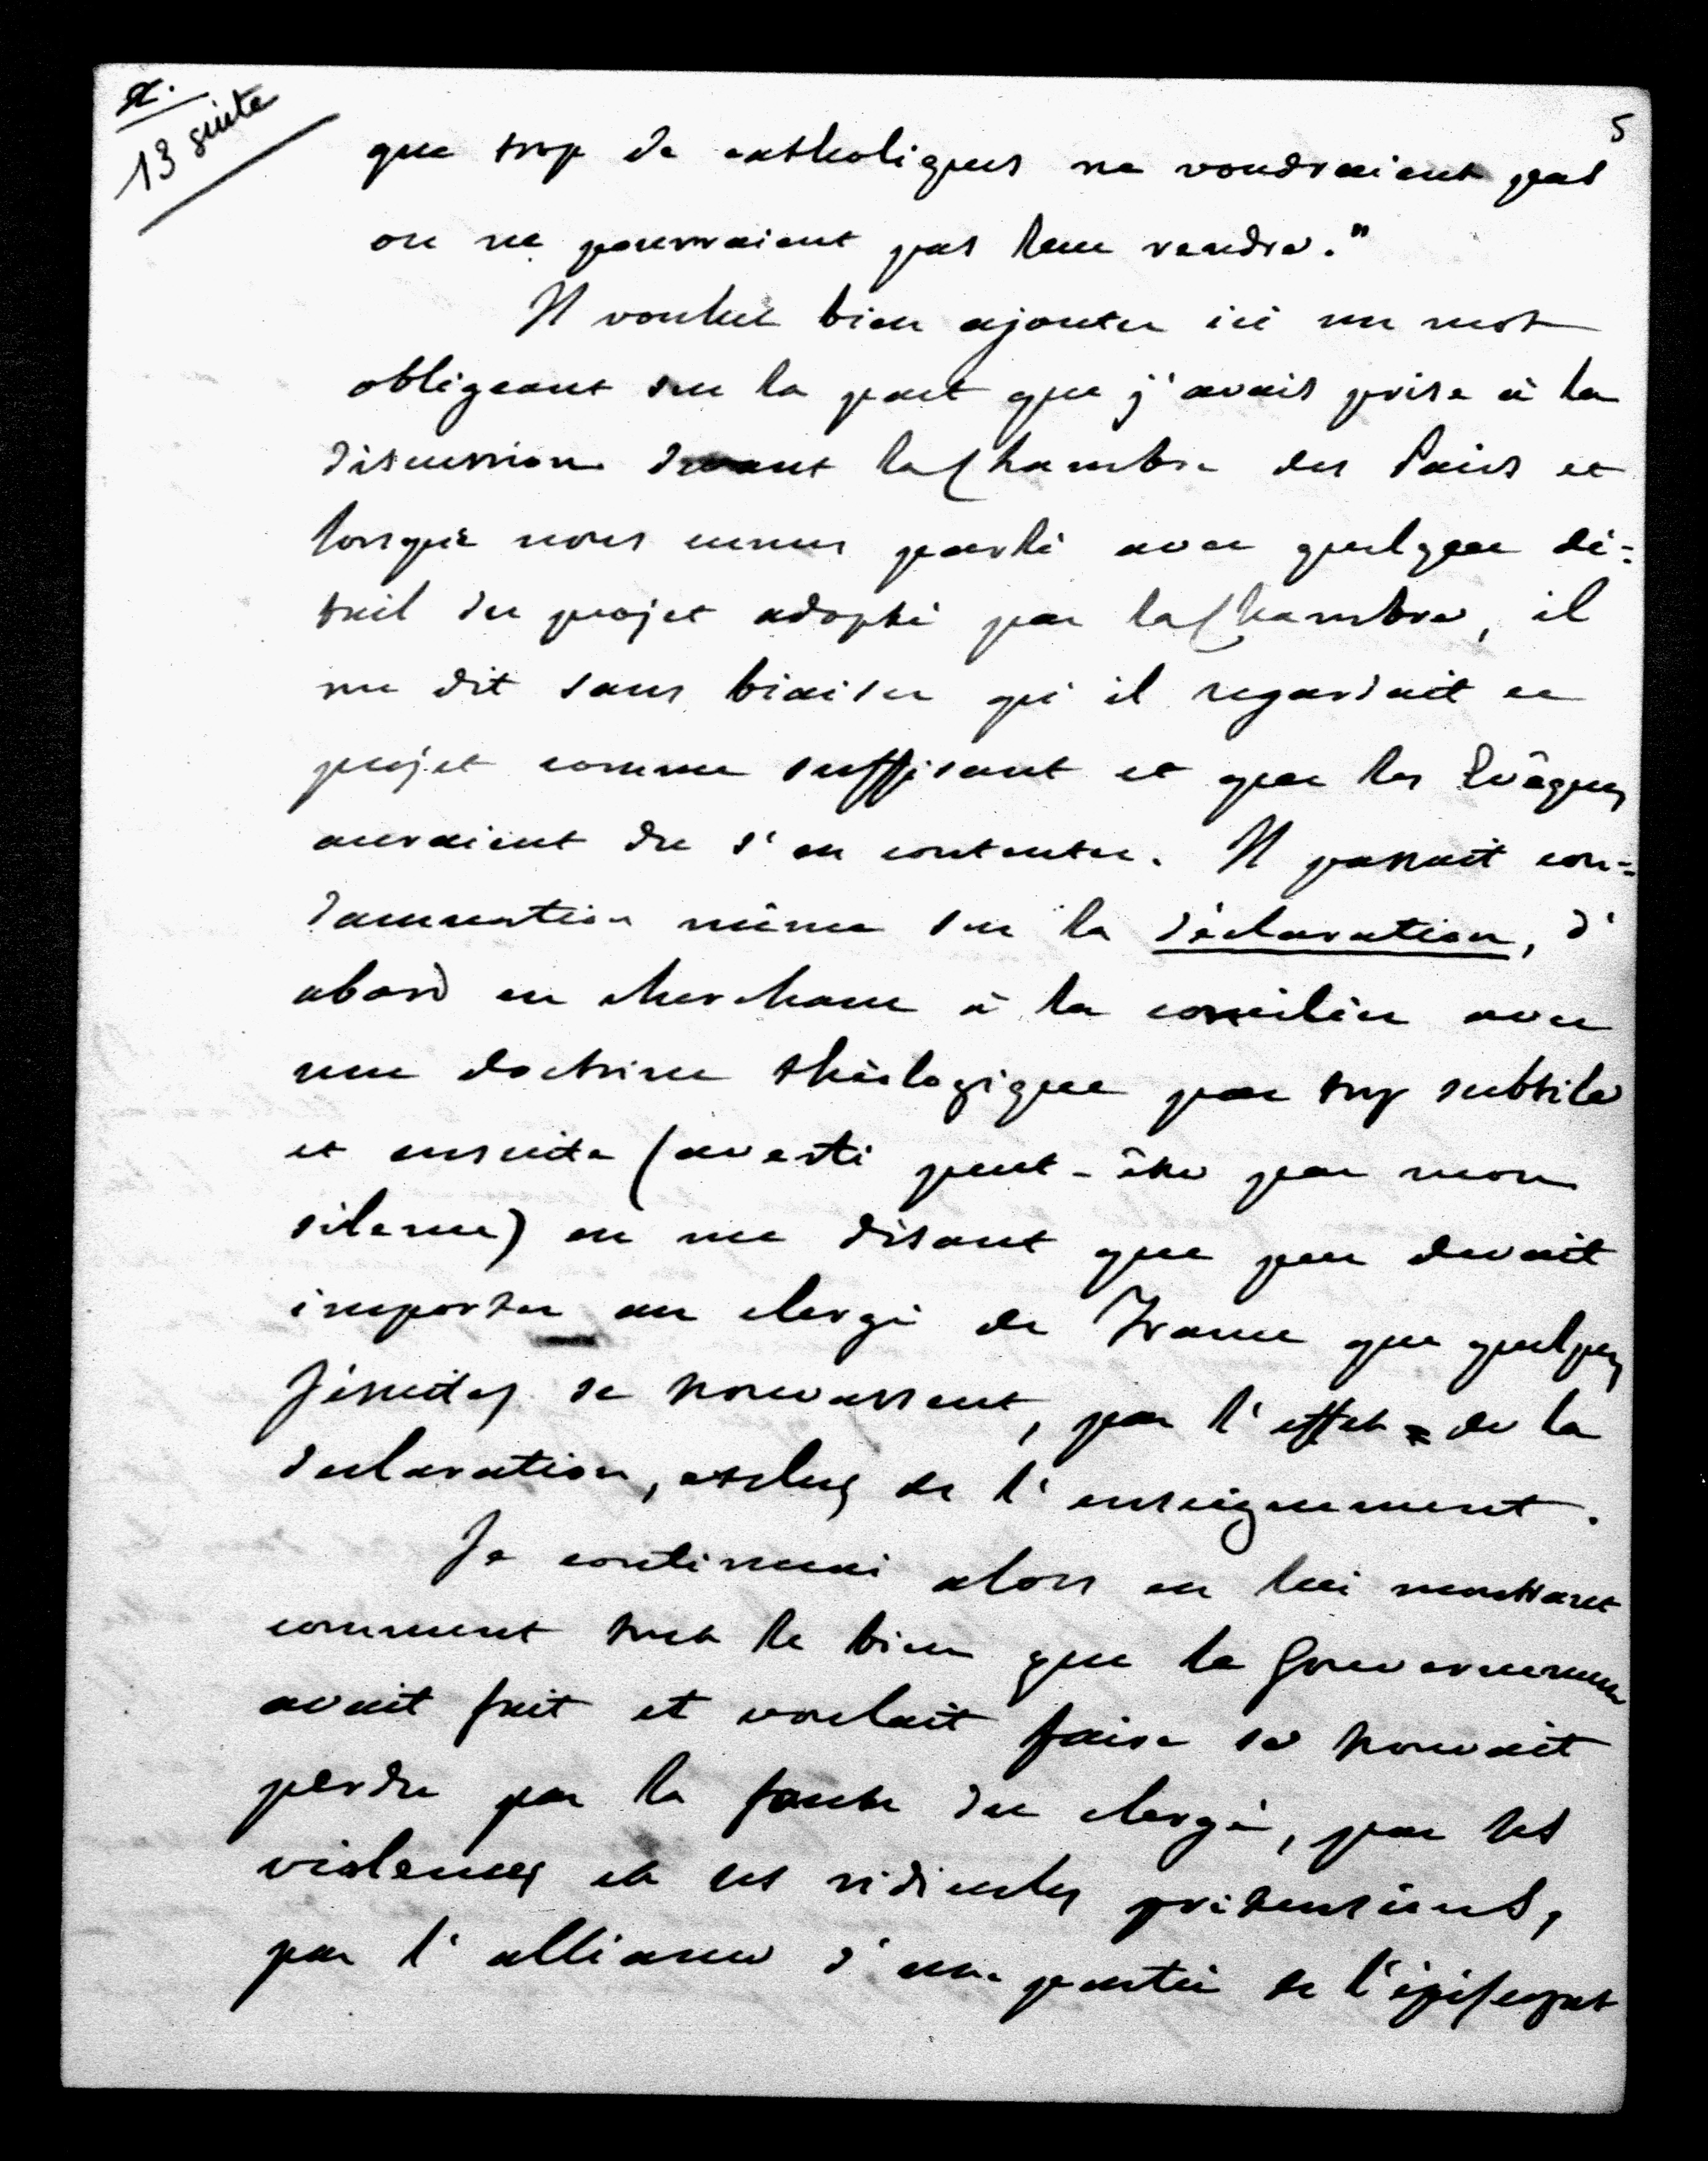 x.
13 suite
5
que trop de catholiques ne voudraient pas
ou ne pourraient pas leur rendre."
Il voulut bien ajouter ici un mot
obligeant sur la part que j'avais prise à la
discussion devant la Chambre des Pairs et
lorsque nous eumes parlé avec quelque dé=
tail du projet adopté par la Chambre, il
me dit sans biaiser qu'il regardait ce
projet comme suffisant et que les Evêques
auraient du s'en contenter. Il passait con=
damnation même sur la déclaration, d'
abord en cherchant à la concilier avec
une doctrine théologique par trop subtile
et ensuite (averti peut-être par mon
silence) en me disant que peu devait
importer au clergé de France que quelques
Jésuites se trouvassent, par l'effet de la
declaration, exclus de l'enseignement.
Je continuai alors en lui montrant
comment tout le bien que le Gouvernement
avait fait et voulait faire se trouvait
perdu par la faute du clergé, par ses
violences et ses ridicules prétensions,
par l'alliance d'une partie de l'épiscopat